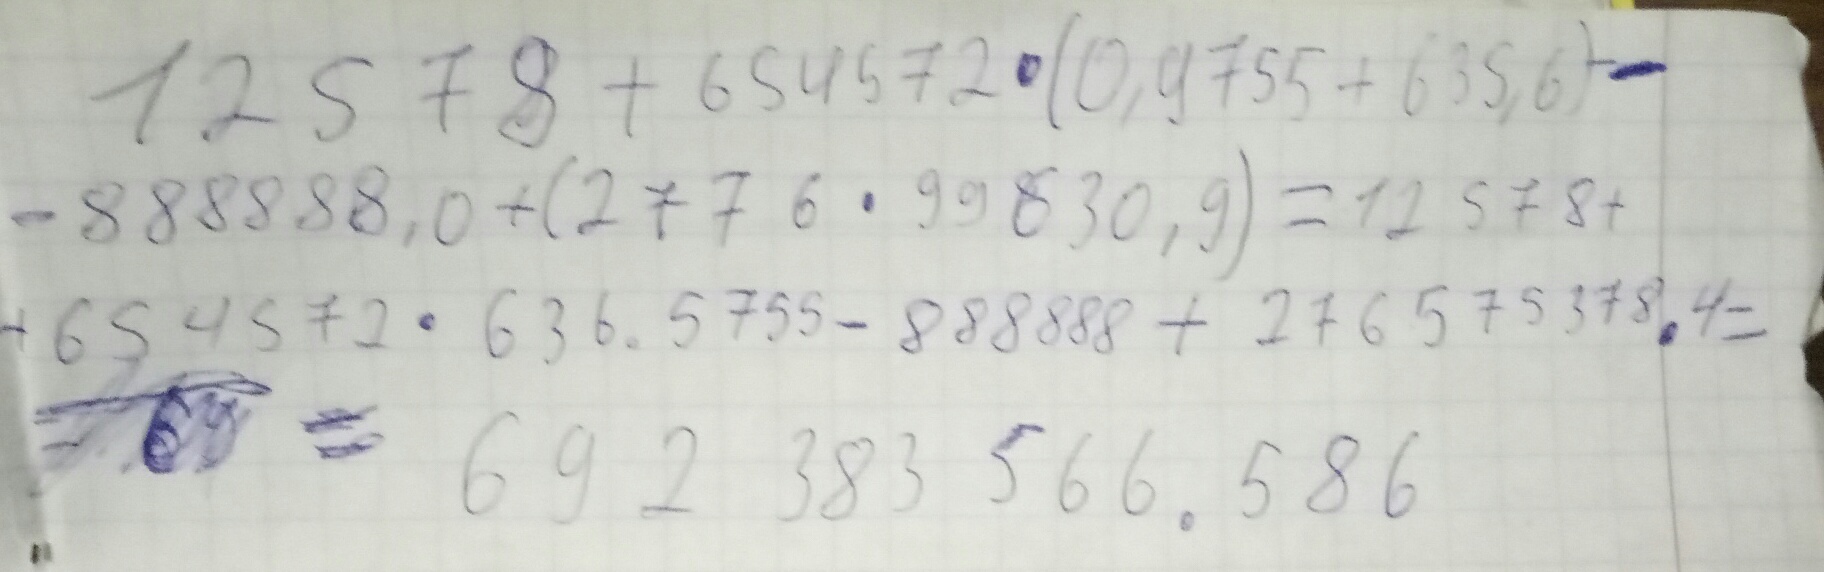 12578+654572•(0,9755+635,6)-
-888888,0+(2776•99630,9)=12578+
+654572•636.5755-888888+276575378.4=
= 692 383 566.586